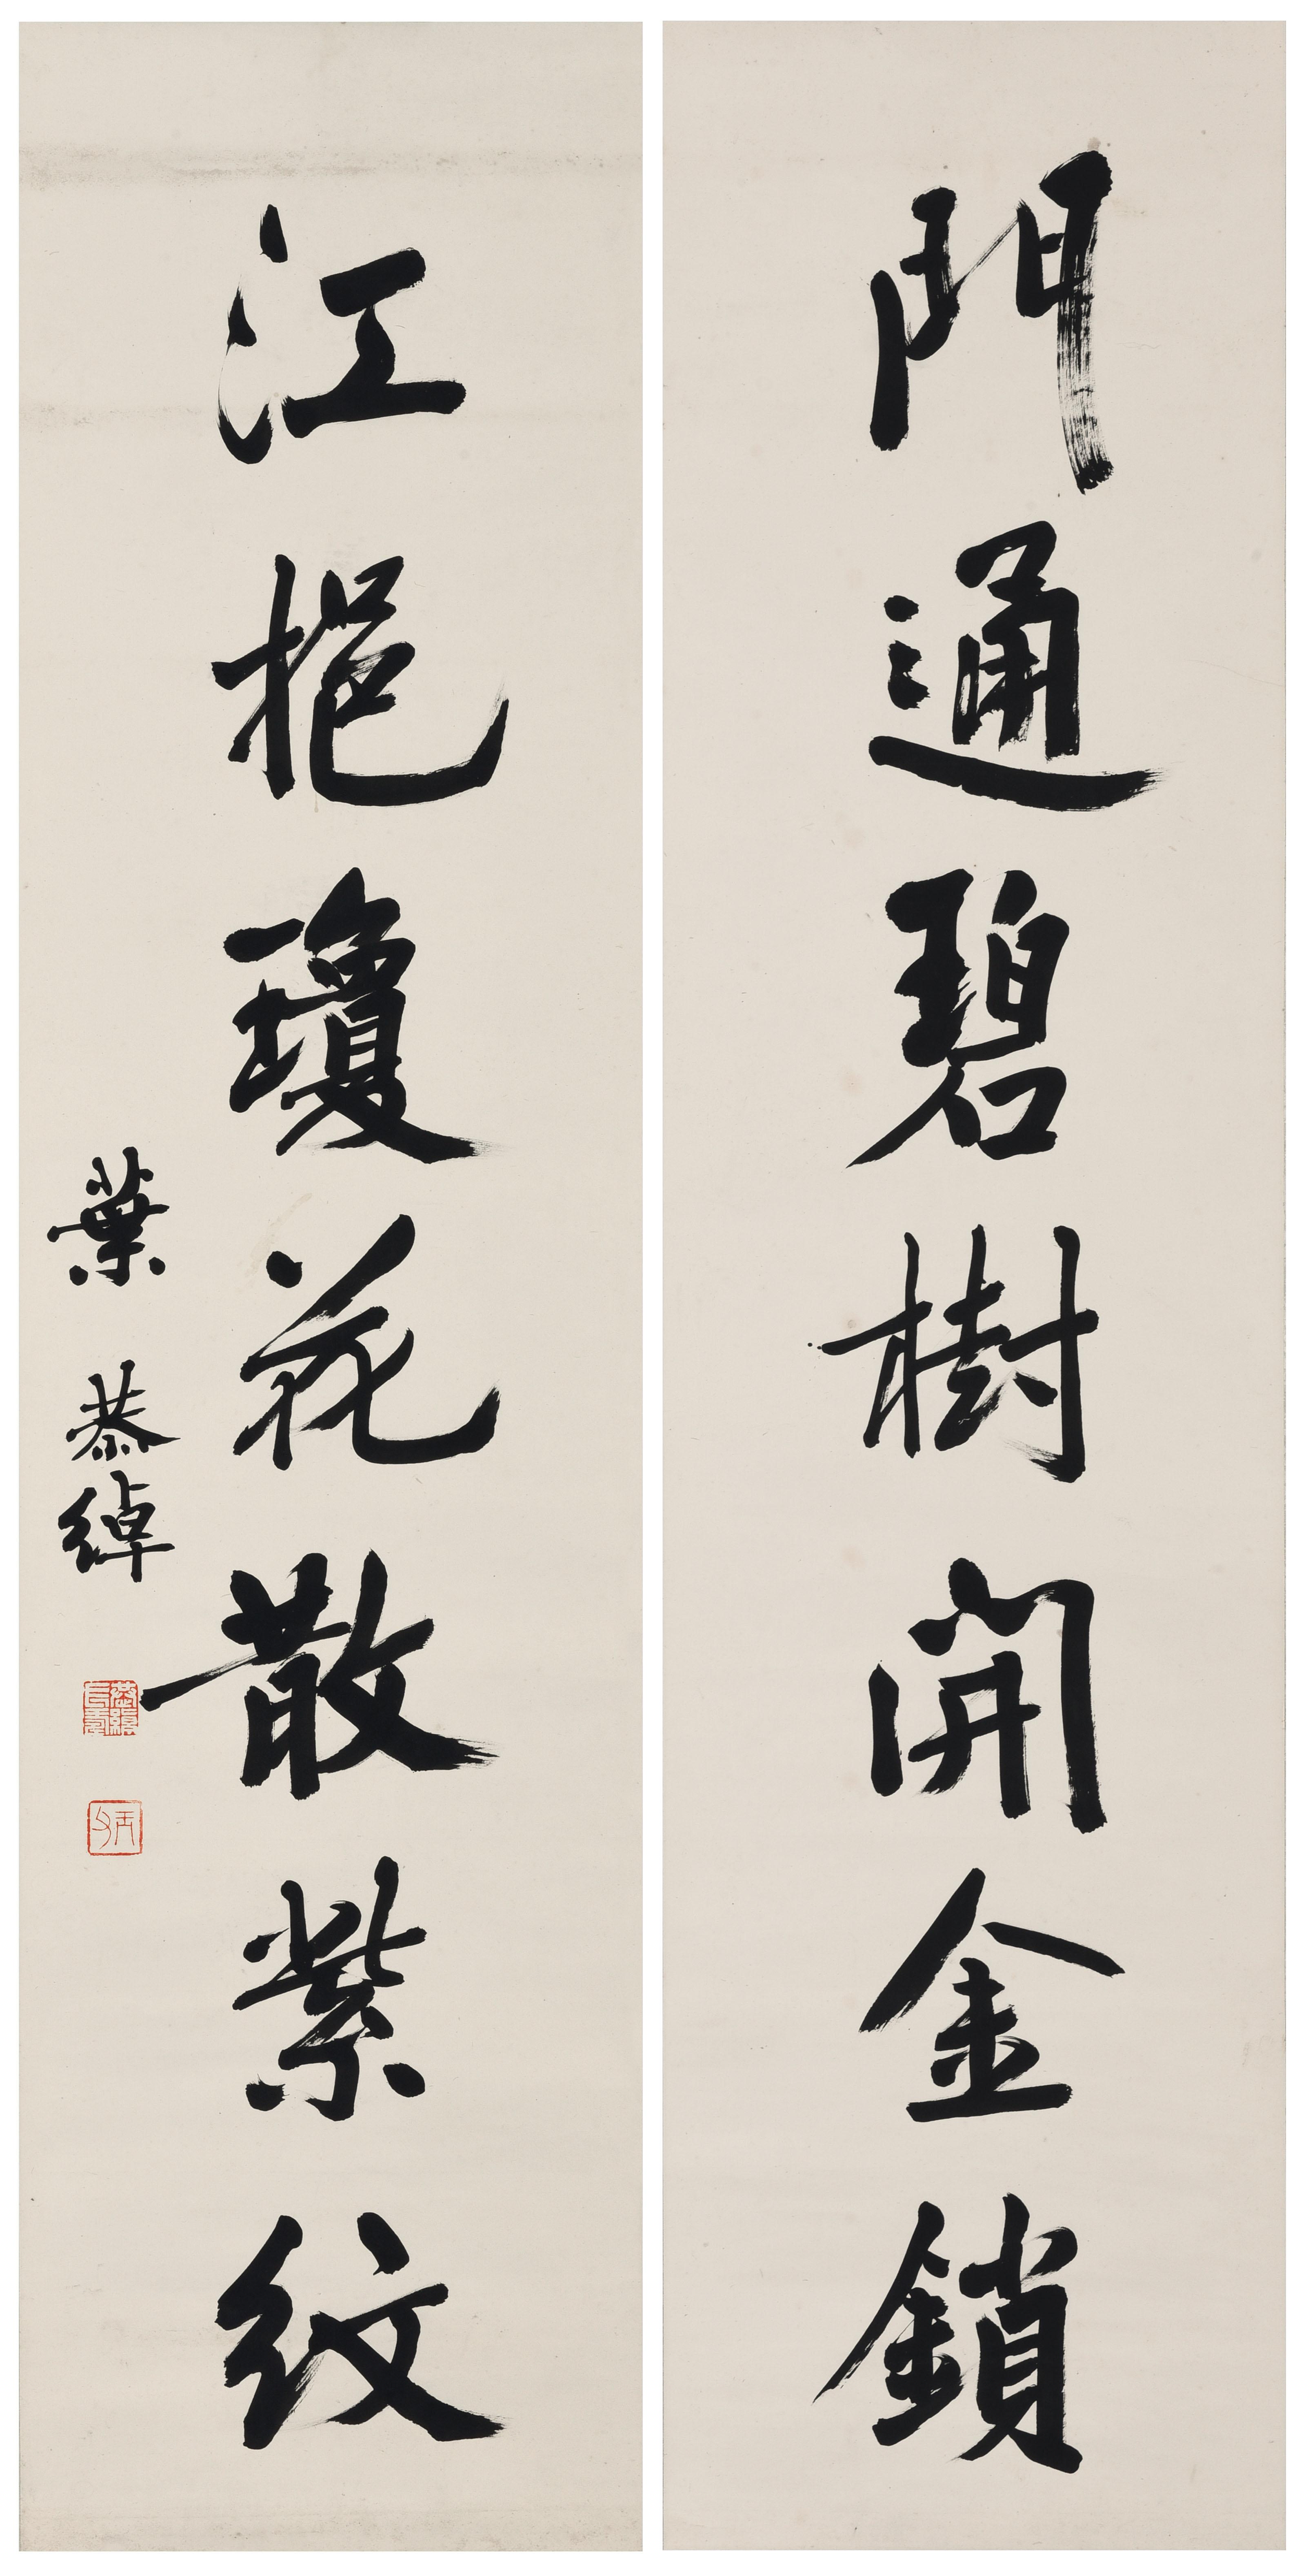 門通碧樹開金鎖
江挹瓊花散紫紋
葉恭綽